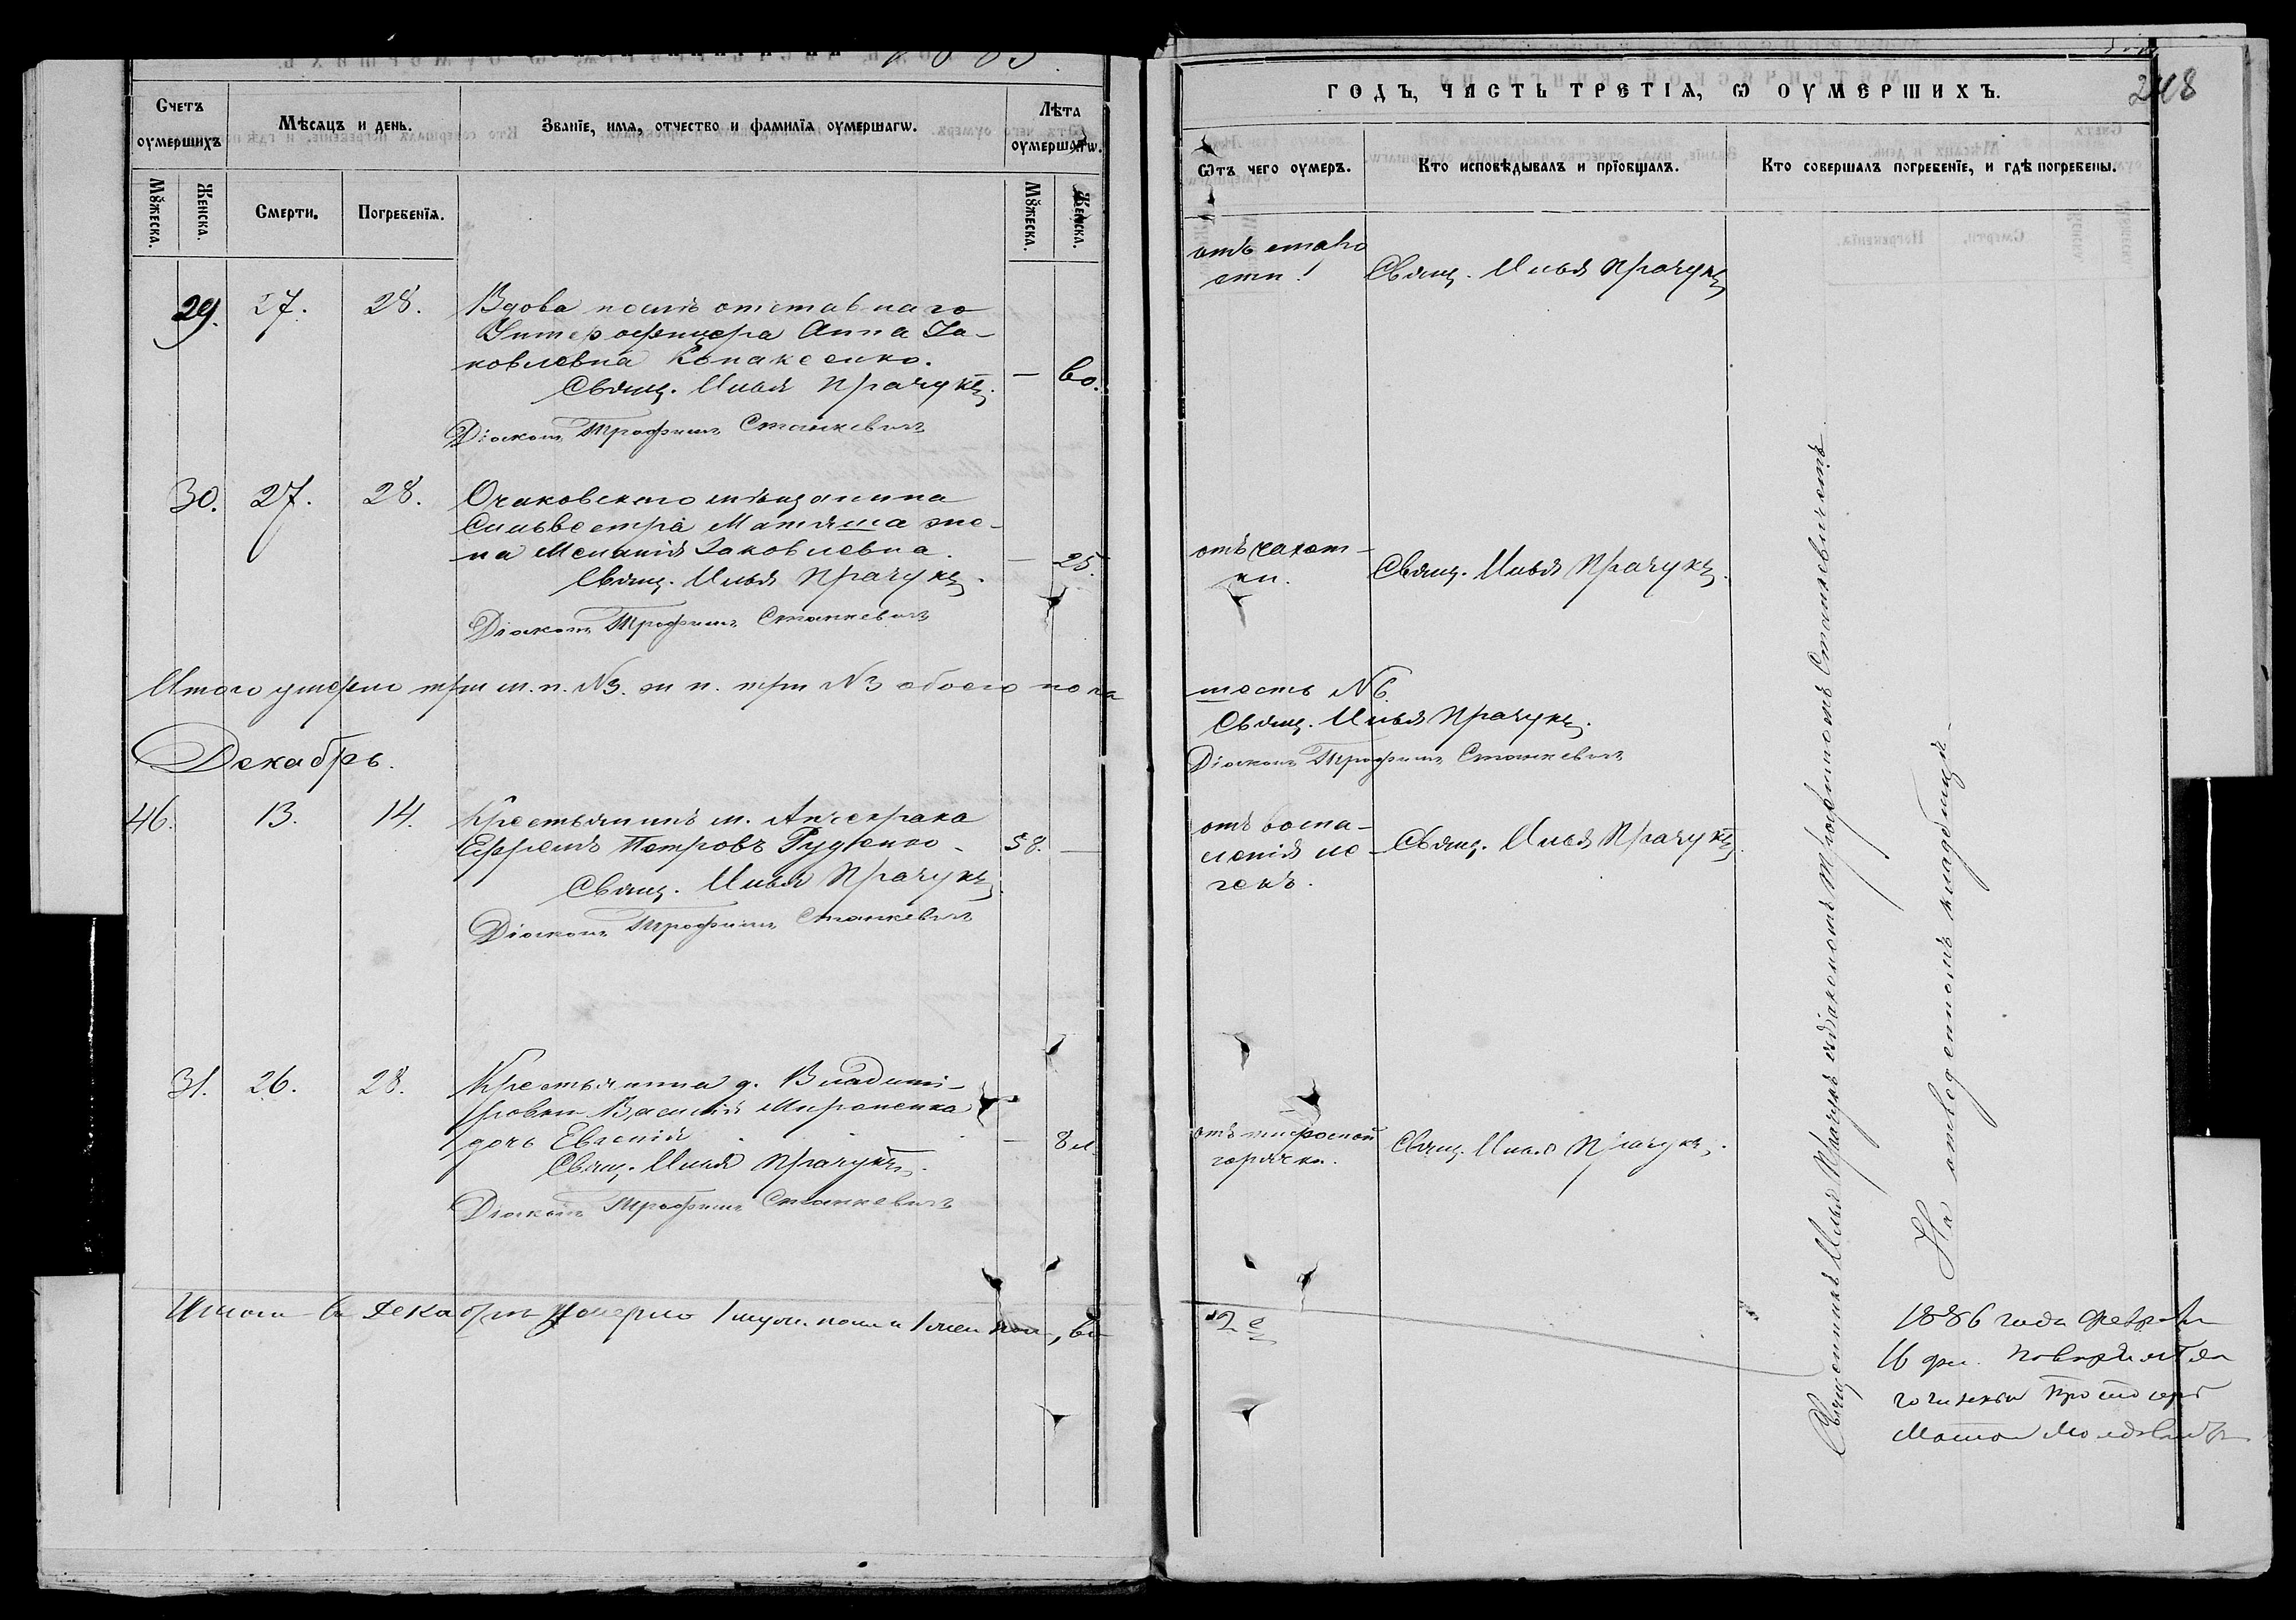 1885
Счетъ оумершихъ
Мѣсяцъ и день.
Званїе, имя, отчество и фамилїя оумершагѡ.
Лѣта оумершагѡ.
Мꙋжеска.
Женска.
Смерти.
Погребенїя.
Мꙋжеска.
Женска.
29. 27. 28. Вдова послѣ отставнаго
Унтерофицера Анна Яковлевна
Свящ. Илья Прачукъ.
Діаконъ Трофимъ Станкевичъ
30. 27. 28. Очаковскаго мѣщанина
Сильвестра Матяша же-
на Меланія Яковлевна. — 25.
Свящ. Илья Прачукъ.
Діаконъ Трофимъ Станкевичъ
Итого умерло три м. п. №3. ж п. три №3 обоего пола
Декабрь.
46. 13. 14. Крестьянинъ м. Анчекрака
Ефремъ Петровъ Руденко 58. —
Свящ. Илья Прачукъ
Діаконъ Трофимъ Станкевичъ
31. 26. 28. Крестьянина д. Владимі-
ровки Василія Мироненка
дочь Евгенія — 8 м.
Свящ. Илья Прачукъ.
Діаконъ Трофимъ Станкевичъ
Итого въ Декабрѣ умерло 1 муж. пола и 1 жен пол
248
ГОДЪ, ЧАСТЬ ТРЕТІЯ, Ѡ ОУМЕРШИХЪ.
Ѿтъ чего оумеръ.
Кто исповѣдывалъ и прїобщалъ.
Кто совершалъ погребенїе, и гдѣ погребены.
отъ старо
сти. Свящ. Илья Прачукъ
отъ чахот-
ки. Свящ. Илья Прачукъ.
шесть №6
Свящ. Илья Прачукъ.
Діаконъ Трофимъ Станкевичъ
отъ воспа-
ленія ле- Свящ. Илья Прачукъ.
гкихъ.
отъ
горячки. Свящ. Илья Прачукъ.
2 е
Священникъ Илья Прачукъ съ діакономъ Трофимомъ Станкевичемъ
На отведенномъ кладбищѣ
1886 года Февраля
16 дня.